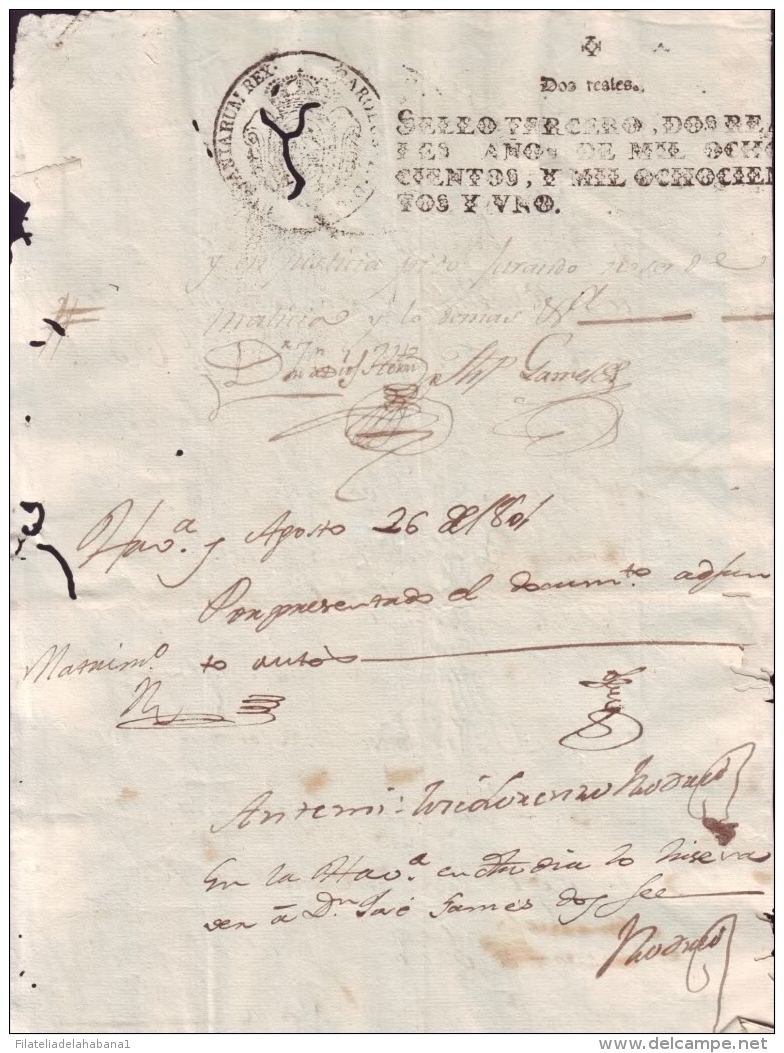 Dos reales.
SELLO TERCERO, DOS REA
LES AÑOS DE MIL OCHO
CIENTOS, Y MIL OCHOCIEN
TOS Y UNO.
CAROLUS
HISPANIARUM REX.
y en justicia pido jurando no ser de
malicia y lo demas &ª
Havª y Agosto 26 de 1801
Por presentado el documto adjun
to autos
Matrimº
Antemi: José Lorenzo Rodrig
En la Havª en dho dia lo hise sa
ver â Dn José Games doy fee
Rodrig
Filateliadelahabana1
www.delcampe.net